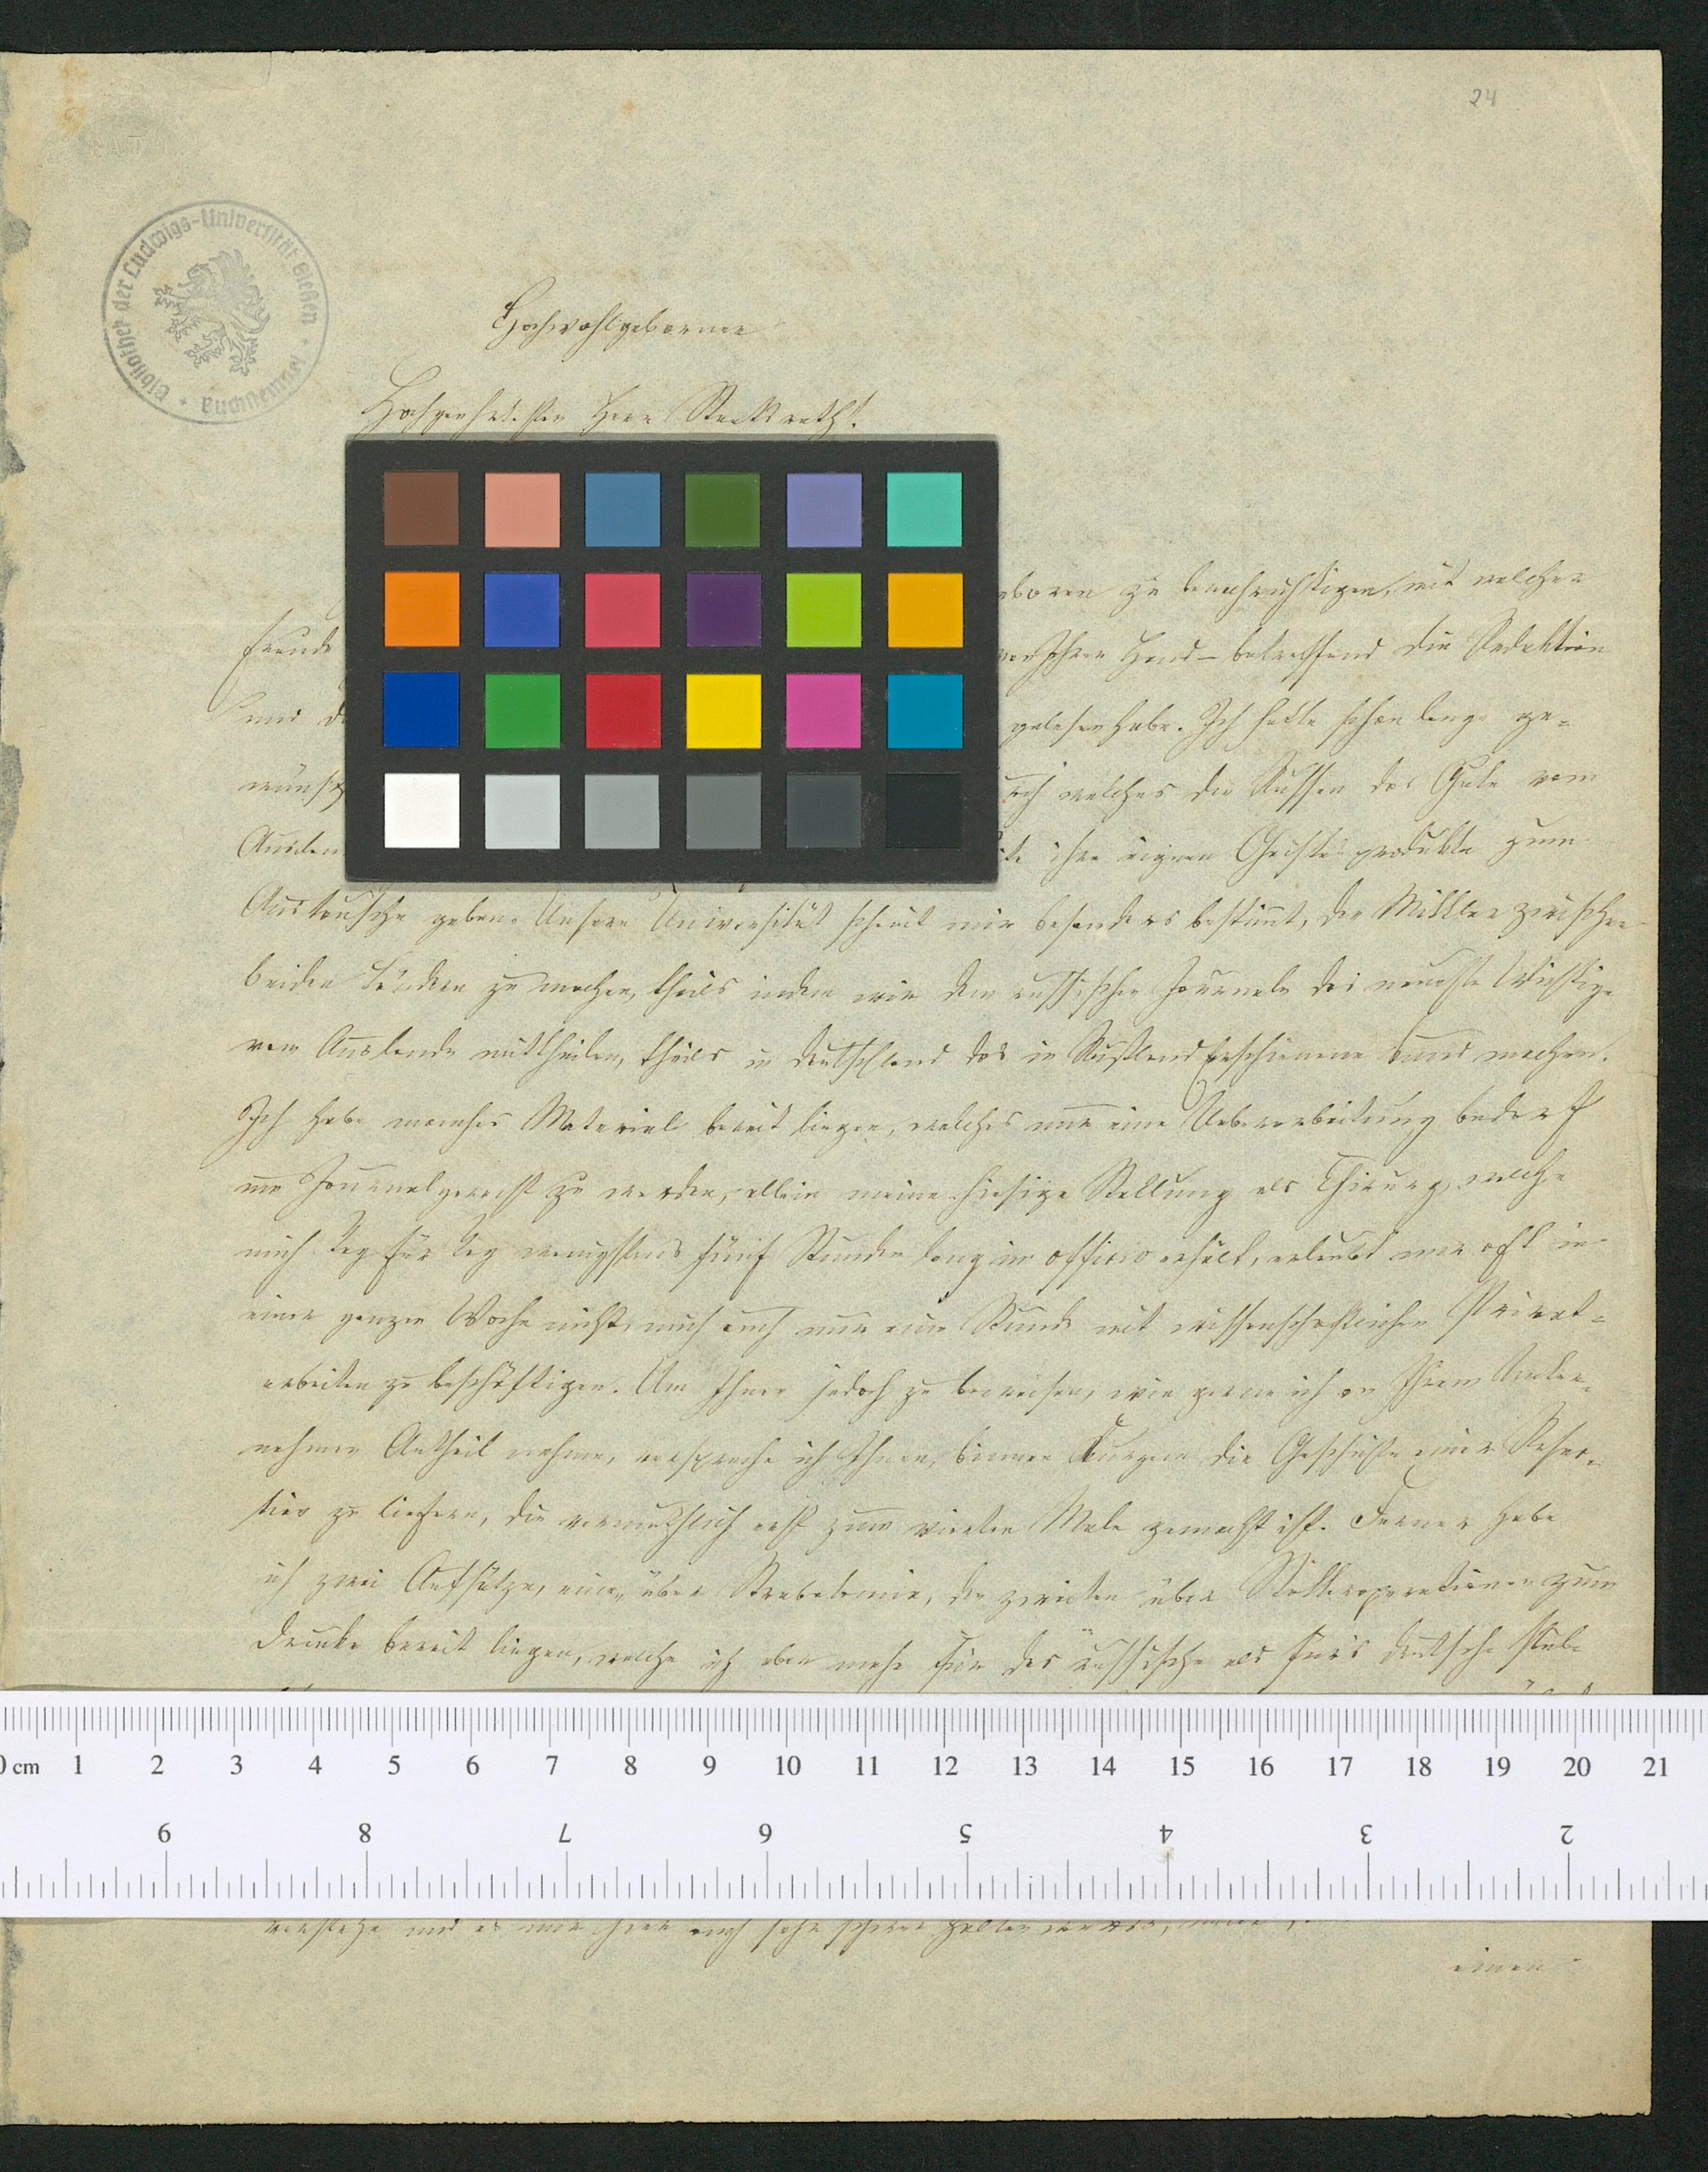 24
Bibliothek der Ludwigs-Universität Gießen
Buchstempel
Hochwohlgeborner
Hochgeehrtester Herr Staatsrath!
eboren zu benachrichtigen, mit welcher
Freude
von Ihrer Hand – betreffend die Redaktion
und
gelesen habe. Ich hatte schon lange ge-
wünsch
durch welches die Russen das Gute vom
Auslan
ihre eignen Geistesprodukte zum
Austausche geben. Unsere Universität scheint mir besonders bestimt, den Mittler zwischen
beiden Ländern zu machen, theils indem wir dem russischen Journale das neueste Wichtige
vom Auslande mittheilen, theils in Deutschland das in Rußland Erschienene kund machen.
Ich habe manches Material bereit liegen, welches nur eine Ueberarbeitung bedarf
um Journalgerecht zu werden, allein meine hiesige Stellung als Chirurg, welche
mich Tag für Tag wenigstens fünf Stunden lang in officio erhält, erlaubt mir oft in
einer ganzen Woche nicht, mich auch nur eine Stunde mit wissenschaftlichen Privat-
arbeiten zu beschäftigen. Um Ihnen jedoch zu beweisen, wie gerne ich an Ihrem Unter-
nehmen Antheil nehme, verspreche ich Ihnen, binnen Kurzem die Geschichte einer Resec-
tion zu liefern, die vermuthlich erst zum vierten Male gemacht ist. Ferner habe
ich zwei Aufsätze, einen über Strabotomie, den zweiten über Stotteroperationen zum
Drucke bereit liegen, welche ich aber mehr für das russische als fürs deutsche Pub-
verstehe und es mir hier auch sehr schwer
einen
0 cm 1 2 3 4 5 6 7 8 9 10 11 12 13 14 15 16 17 18 19 20 21
9 8 7 6 5 4 3 2